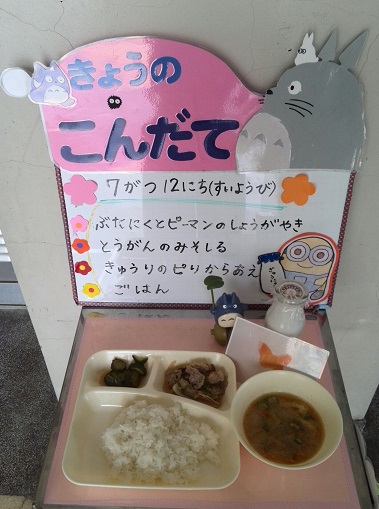 きょうの
こんだて
7がつ12にち(すいようび)
ぶたにくとピーマンのしょうがやき
とうがんのみそしる
きゅうりのピリからあえ
ごはん